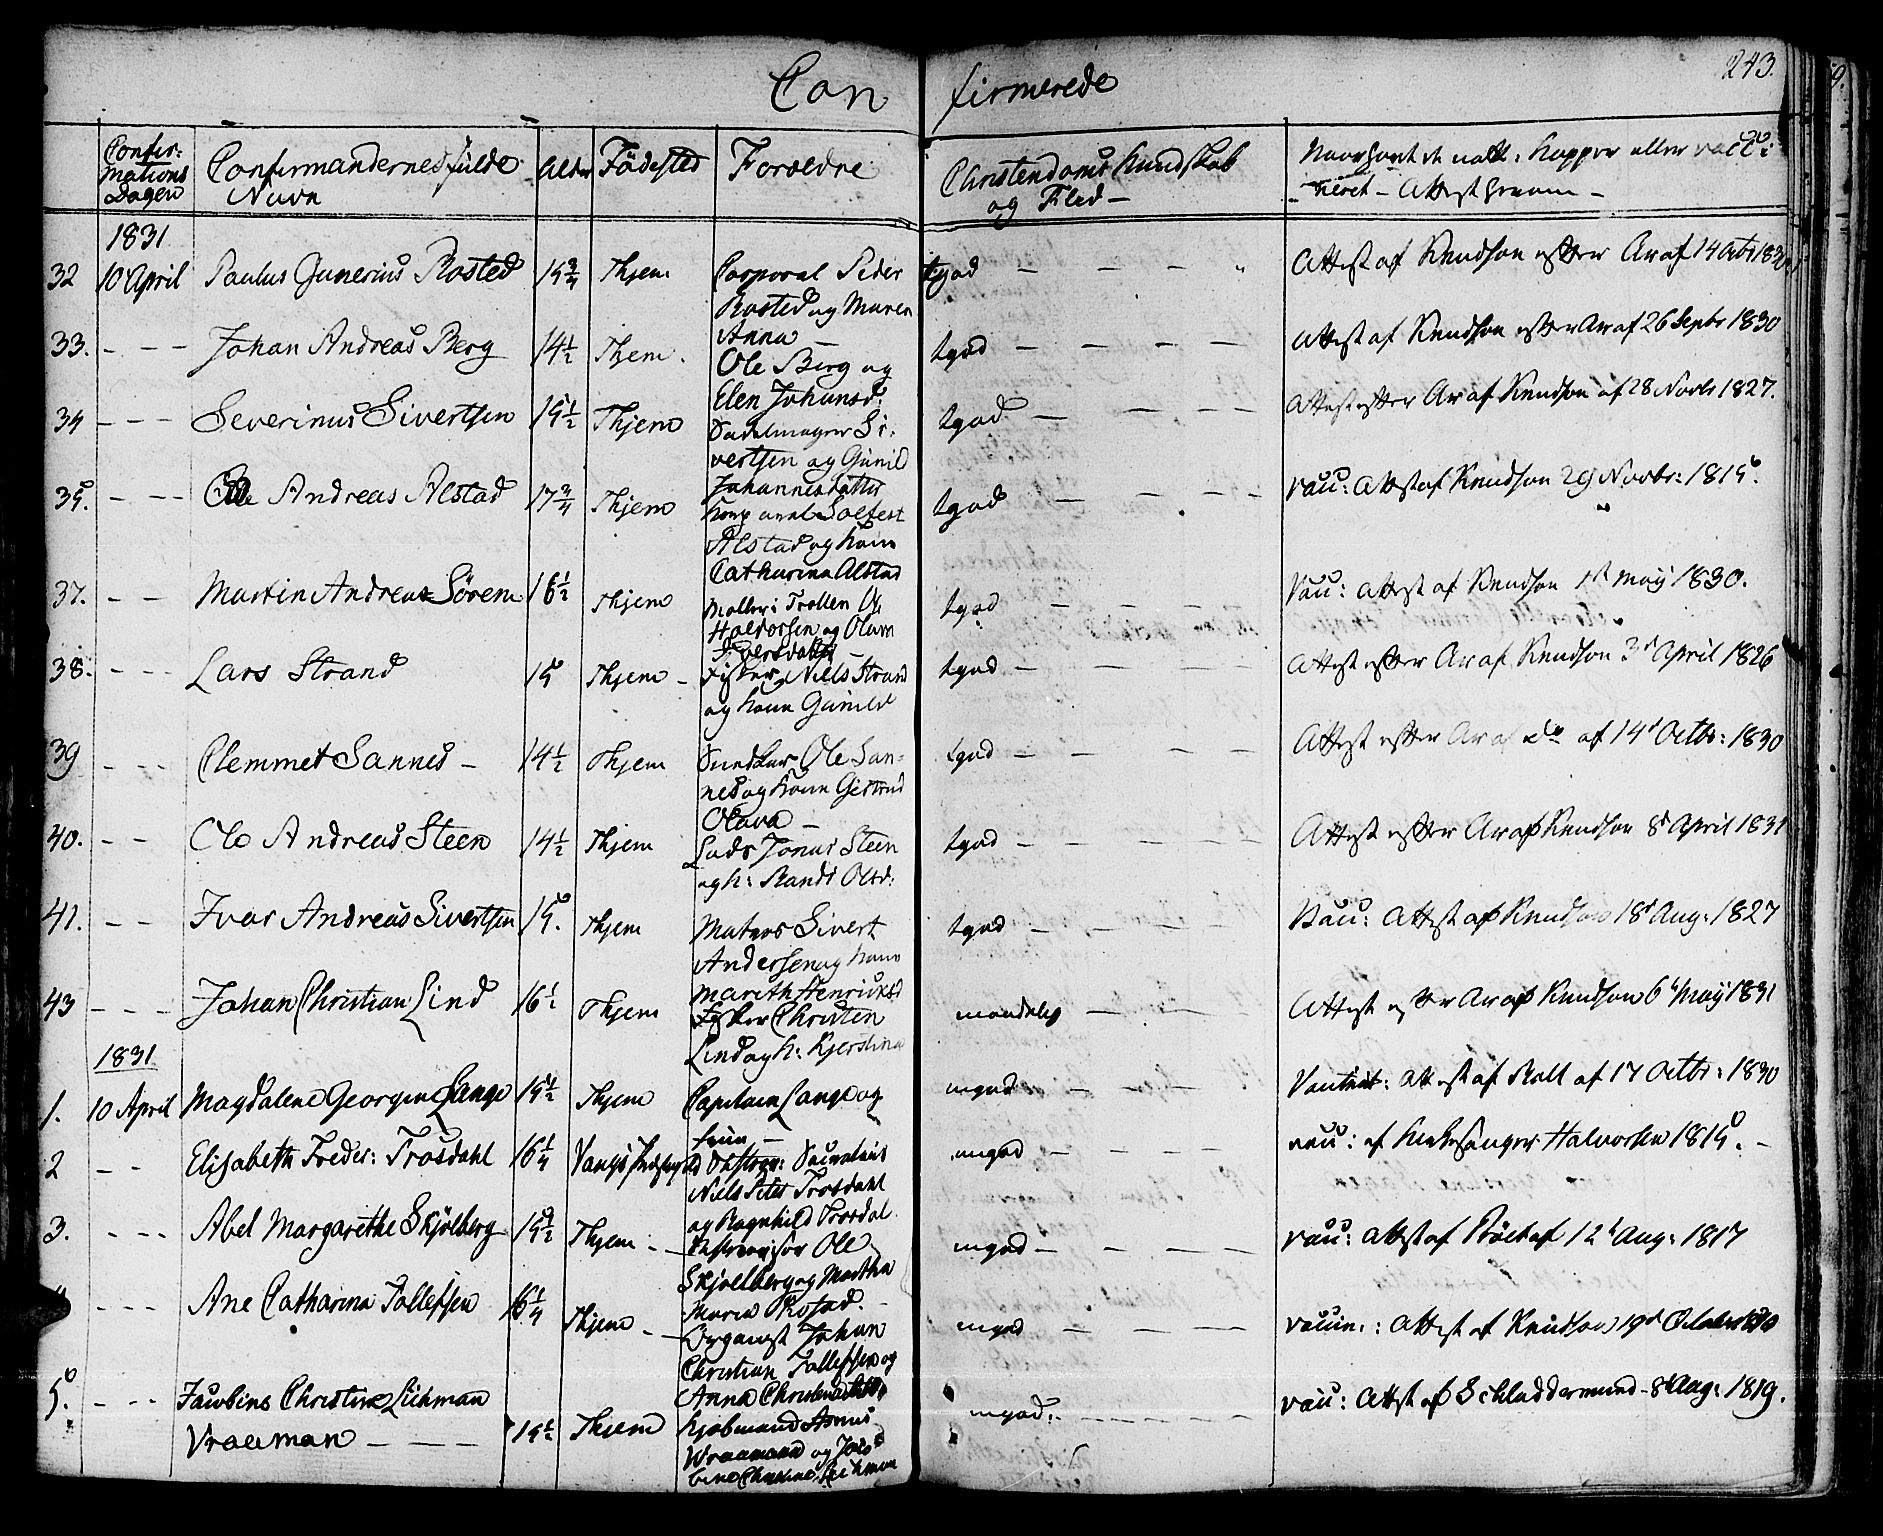 Con firmerede
243.
Confir-
mations
Dagen
Confirmandernes fulde
Navn
Alder
Födested
Forældre
Christendoms Kundskab
og Flid —
Naar havt de natt: Kopper eller vacci-
neret — Attest herom —
1831
32 10 April Paulus Gunerius Rosted 15 3/4 Thjem Corporal Peder
Rosted og Maren
Anna —
tgod — — — "
Attest af Knudson efter Ar af 14 Octb 1830
33. - - - Johan Andreas Berg 14 1/2 Thjem. Ole Berg og
Elen Johansd:
tgod — — — —
Attest af Knudson efter Ar af 26 Septbr 1830
34 - - - Severinus Sivertsen 15 1/2 Thjem Sadelmager Si-
vertsen og Gunild
Johannesdatter
tgod. — — — —
Attest efter Ar af Knudson af 28 Novbr 1827.
35. - - - Ole Andreas Alstad 17 3/4 Thjem Korporal
Alstad og Kone
Catharina Alstad
tgod — — — —
vacc: Attest af Knudson 29 Novbr: 1815.
37. - - Martin Andreas Sörens 16 1/2 Thjem
Halvorsen og
Iversdatter
tgod — — — —
Vacc: Attest af Knudson 1st May 1830.
38. - - - Lars Strand 15 Thjem - Fisker Niels Strand
og Kone Gunild
tgod —
Attest efter Ar af Knudson 3d April 1826
39 - - - Clemmet Sannes — 14 1/2 Thjem Ole San-
nes og Kone Gertrud
Olava —
tgod — — — —
Attest efter Ar af do af 14d Octbr: 1830
40. - - Ole Andreas Steen 14 1/2 Thjem Lods Jonas Steen
og K: Randi Olsd:
tgod — — — —
Attest efter Ar af Knudson 8d April 1831
41. - - Ivar Andreas Sivertsen 15. Thjem Matros Sivert
Andersen og Kone
Marith Henriksd
tgod — — — —
Vacc: Attest af Knudson 18d Aug: 1827
43 - - - Johan Christian Lind 16 1/2 Thjem Fisker Christen
Lind og K: Kjerstina
maadelig — — —
Attest efter Ar af Knudson 6d May 1831
1831
1. 10 April Magdalene Georgine Lange 15 1/2 Thjem Capitain Lange og
Frue —
mgod — — —
Vaccinat: Attest af Roll af 17 Octbr: 1830
2 - - Elisabeth Freder: Trosdahl 16 1/4 Vangs
Niels Peter Trosdahl
og Ragnhild Trosdal
mgod — — —
vacc: af Kirkesanger Halvorsen 1815. —
3. - - - Abel Margarethe Skjolberg 15 1/2 Thjem - - Ole
Skjolberg og Martha
Maria Rosted. —
mgod — — — —
vacc: Attest af 12d Aug: 1817
- - - Ane Catharina Tollefsen 16 1/4 Thjem - - Organist Johan
Christian Tollefsen og
Anna
mgod — — — —
vaccin: Attest af Knudson 19d
5. - - - Jacobine Christine Lühman
Vraaman — — — 15 1/2 Thjem Kjobmand
Wraamand og Jaco-
bine Christine Lühman
mgod. - - - - -
vacc: Attest af Schladdermund 8d Aug: 1819.